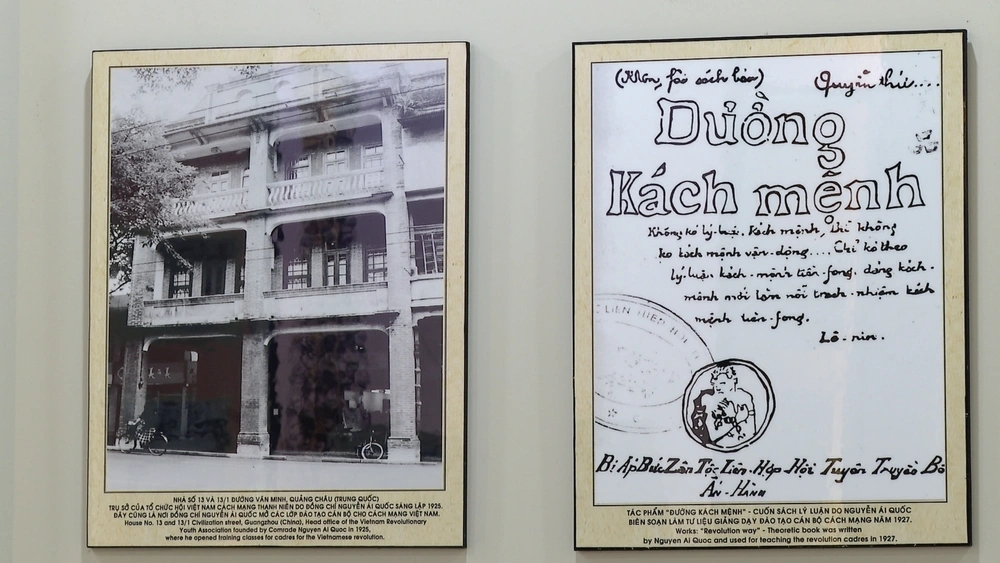 NHÀ SỐ 13 VÀ 13/1 ĐƯỜNG VĂN MINH, QUẢNG CHÂU (TRUNG QUỐC)
TRỤ SỞ CỦA TỔ CHỨC HỘI VIỆT NAM CÁCH MẠNG THANH NIÊN DO ĐỒNG CHÍ NGUYỄN ÁI QUỐC SÁNG LẬP 1925.
ĐÂY CŨNG LÀ NƠI ĐỒNG CHÍ NGUYỄN ÁI QUỐC MỞ CÁC LỚP ĐÀO TẠO CÁN BỘ CHO CÁCH MẠNG VIỆT NAM.
House No. 13 and 13/1 Civilization street, Guangzhou (China), Head office of the Vietnam Revolutionary
Youth Association founded by Comrade Nguyen Ai Quoc in 1925,
where he opened training classes for cadres for the Vietnamese revolution.
Quyển thứ....
Đường
Kách mệnh
Không kó lý luận kách mệnh, thì không
kó kách mệnh vận-động.... Chỉ kó theo
lý luận kách-mệnh tiền-fong, đảng kách-
mệnh mới làm nổi trách-nhiệm kách
mệnh tiền-fong.
Lê-nin.
Bị Áp Bức Zân Tộc Liên-Hợp Hội Tuyên Truyền Bộ
Ấn-Hành
TÁC PHẨM "ĐƯỜNG KÁCH MỆNH" - CUỐN SÁCH LÝ LUẬN DO NGUYỄN ÁI QUỐC
BIÊN SOẠN LÀM TƯ LIỆU GIẢNG DẠY ĐÀO TẠO CÁN BỘ CÁCH MẠNG NĂM 1927.
Works: "Revolution way" - Theoretic book was written
by Nguyen Ai Quoc and used for teaching the revolution cadres in 1927.